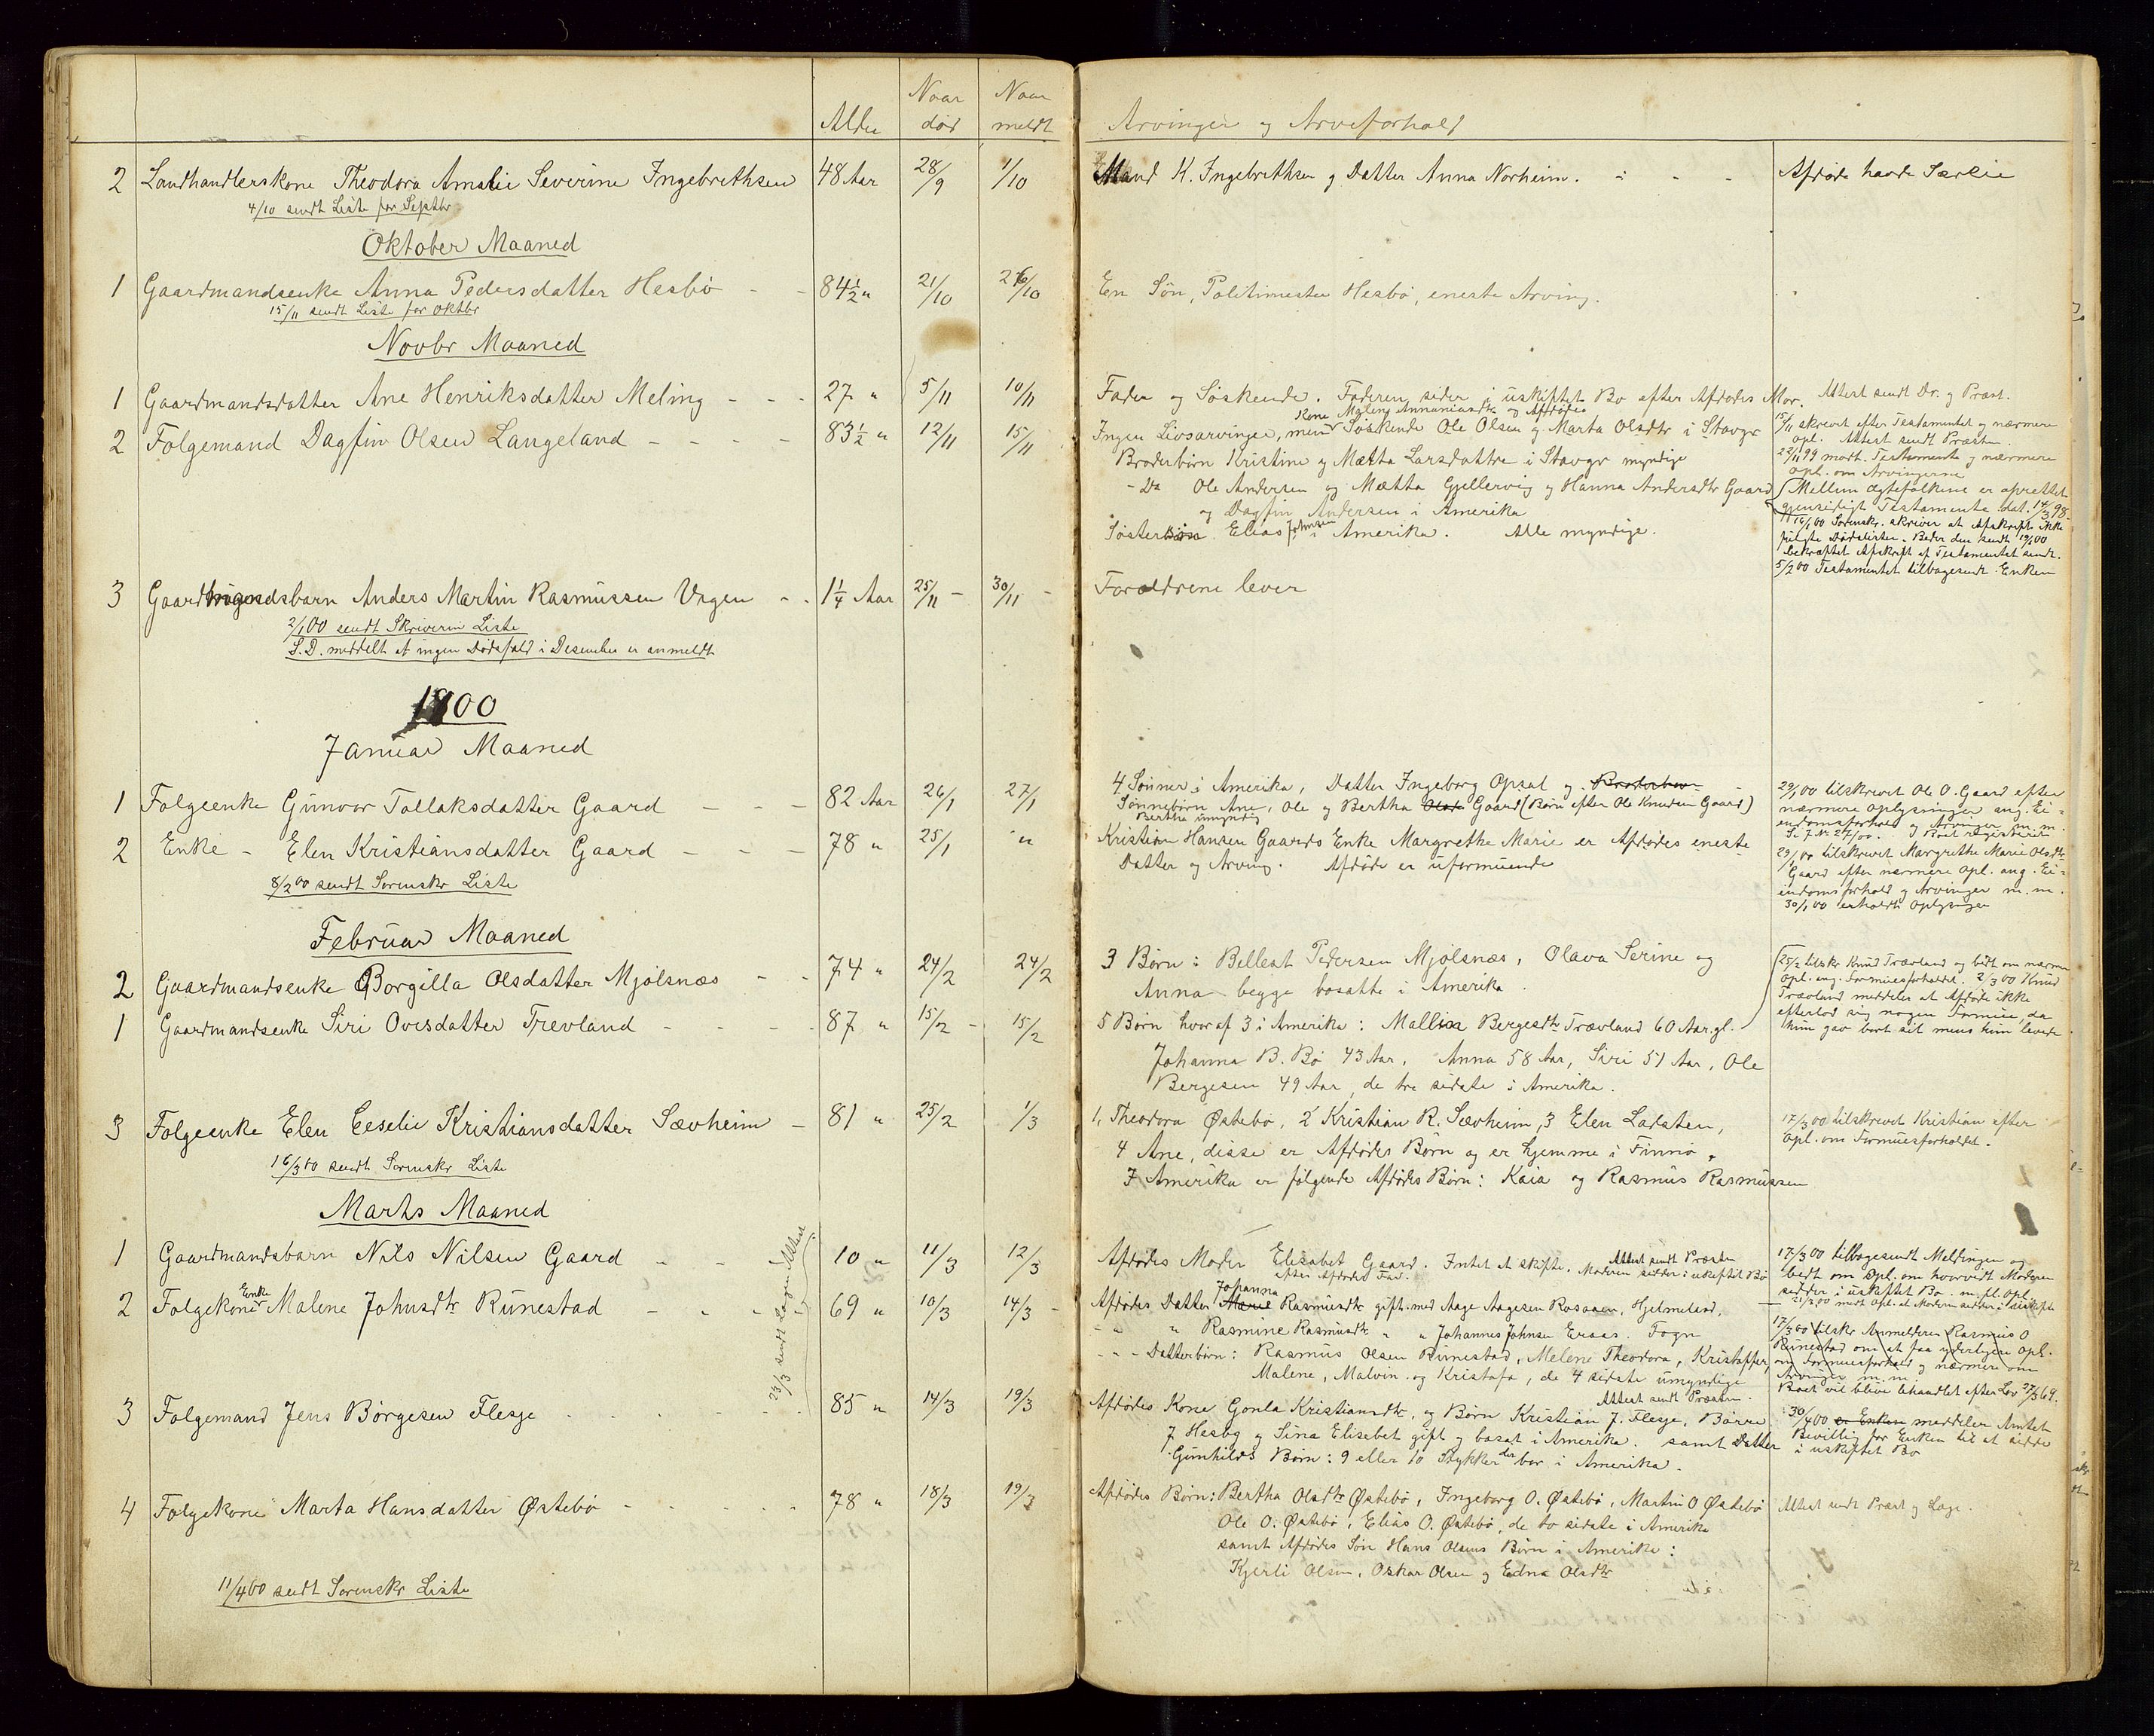 Alder
Naar død
Naar meldt
Arvinger og Arveforhold
2 Landhandlerskone Theodora Amalie Severine Ingebrethsen 48 Aar 28/9 1/10
4/10 sendt Liste for Septbr.
Mand K. Ingebrethsen og Datter Anna Norheim.
Afdøde havde Særeie
Oktober Maaned
1 Gaardmandsenke Anna Pedersdatter Hesbø 84½ " 21/10 26/10
15/11 sendt Liste for Oktbr
En Søn, Politimester Hesbø, eneste Arving.
Novbr Maaned
1 Gaardmandsdatter Ane Henriksdatter Meling 27 " 5/11 10/11
Fader og Søskende. Faderen sider i uskiftet Bo efter Afdødes Mor.
Attest sendt Dr. og Præst.
2 Folgemand Dagfin Olsen Langeland 83½ " 12/11 15/11
Kone Malene Annaniasdtr og Afdødes
Ingen Livsarvinger, men Søskende Ole Olsen og Marta Olsdtr i Stavgr
Broderbørn Kristine og Mætta Larsdattre i Stavgr myndige
- Do Ole Andersen og Mætta Gjellervig og Hanna Andersdtr Gaard
og Dagfin Andersen i Amerika
Søster Elias Johnsen i Amerika. Alle myndige.
15/11 skrevet efter Testamentet og nærmere
opl. Attest sendt Præsten.
22/11 99 modt. Testamente og nærmere
opl. om Arvingerne
Mellem Ægtefolkene er oprettet
gjensidigt Testamente dat. 14/3 98.
16/1 00 Sorenskr. skriver at Afskrift ikke
fulgte Dødslisten. Beder den sendt 19/1 00
Bekræftet Afskrift af Testamentet sendt.
5/2 00 Testamentet tilbagesendt Enken
3 Gaardmandsbarn Anders Martin Rasmussen Vagen 1¼ Aar 25/11 30/11
2/1 00 sendt Skriveren Liste
S.D. meddelt at ingen Dødsfald i Desember er anmeldt
Forældrene lever
1900
Januar Maaned
1 Folgeenke Gunvor Tollaksdatter Gaard 82 Aar 26/1 27/1
4 Sønner i Amerika, Datter Ingeborg Opsal og Broderbørn
Sønnebørn Ane, Ole og Bertha Olsdtr Gaard (Børn efter Ole Knudsen Gaard)
Bertha umyndig
29/1 00 tilskrevet Ole O. Gaard efter
nærmere Oplysninger ang. Ei=
endomsforhold og Arvinger m.m.
2 Enke - Elen Kristiansdatter Gaard 78 " 25/1 "
8/2 00 sendt Sorenskr Liste
Kristian Hansen Gaards Enke Margrethe Marie er Afdødes eneste
Datter og Arving. Afdøde er uformuende
29/1 00 tilskrevet Margrethe Marie Olsdtr
Gaard efter nærmere Opl. ang. Ei=
endomsforhold og Arvinger m.m.
30/1 00 erholdt Oplysninger
Februar Maaned
2 Gaardmandsenke Borgilla Olsdatter Mjølsnæs 74 " 24/2 24/2
3 Børn: Bellest Pedersen Mjølsnæs, Olava Serine og
Anna begge bosatte i Amerika.
1 Gaardmandsenke Siri Ovesdatter Trevland 87 " 15/2 15/2
5 Børn hvoraf 3 i Amerika: Mallisa Bergesdtr Trævland 60 Aar gl.
Johanna B. Bø 43 Aar, Anna 58 Aar, Siri 51 Aar, Ole
Bergesen 49 Aar, de tre sidste i Amerika.
25/2 tilskr Knud Trævland og bedt om nærm
Opl. ang. Formuesforholdet. 2/3 00 Knud
Trævland meddeler at Afdøde ikke
efterlod sig nogen Formue, da
hun gav bort sit mens hun levede
3 Folgeenke Elen Eeselie Kristiansdatter Sævheim 81 " 25/2 1/3
16/3 00 sendt Sorenskr Liste
1, Theodora Østebø, 2 Kristian R. Sævheim, 3 Elen Ladsten,
4 Ane, disse er Afdødes Børn og er hjemme i Finnø.
I Amerika er følgende Afdødes Børn: Kaia og Rasmus Rasmussen
17/3 00 tilskrevet Kristian efter
Opl. om Formuesforholdet.
Marts Maaned
1 Gaardmandsbarn Nils Nilsen Gaard 10 " 11/3 12/3
23/3 sendt Lagen Attest
Afdødes Moder Elisabet Gaard. Intet at skifte. Moderen sidder i uskiftet Bo
efter Afdødes Far.
Attest sendt Præsten
17/3 00 tilbagesendt Meldingen og
bedt om Opl. om hvorvidt Moderen
sidder i uskiftet Bo m. fl. Opl.
21/3 00 modt Opl. at Moderen sidder i uskifte
2 Folgekone Enke Malene Johnsdtr Runestad 69 " 10/3 14/3
Afdødes Datter Marie Johanna Rasmusdtr gift med Aage Aagesen Rosaaen, Hjelmeland,
" " Rasmine Rasmusdtr " " Johannes Johnsen Eraas. Fogn
- - - Datterbørn: Rasmus Olsen Runestad, Melene Theodora, Kristoffer,
Malene, Malvin og Kristofa, de 4 sidste umyndige
17/3 00 tilskr Anmelderen Rasmus O
Runestad om at faa yderligere Opl.
om Formuesforhold og nærmere om
Arvinger m.m.
Boet vil blive behandlet efter Lov 27/3 69.
3 Folgemand Jens Børgesen Flesje 85 " 14/3 19/3
Attest sendt Præsten.
Afdødes Kone Gonla Kristiansdtr, og Børn Kristian J. Flesje, Børre
J. Hesbø og Sina Elisebet gift og bosat i Amerika. samt Datter
Gunhilds Børn: 9 eller 10 Stykker der bor i Amerika.
30/4 00 er Enken meddeler Amtet
Bevilling for Enken til at sidde
i uskiftet Bo
4 Folgekone Marta Hansdatter Østebø 78 " 18/3 19/3
Afdødes Børn: Bertha Olsdtr Østebø, Ingeborg O. Østebø, Martin O Østebø
Ole O. Østebø, Elias O. Østebø, de to sidste i Amerika
samt Afdødes Søn Hans Olsens Børn i Amerika:
Kjerli Olsen, Oskar Olsen og Edna Olsdtr
Attest sendt Præst og Læge.
11/4 00 sendt Sorenskr Liste